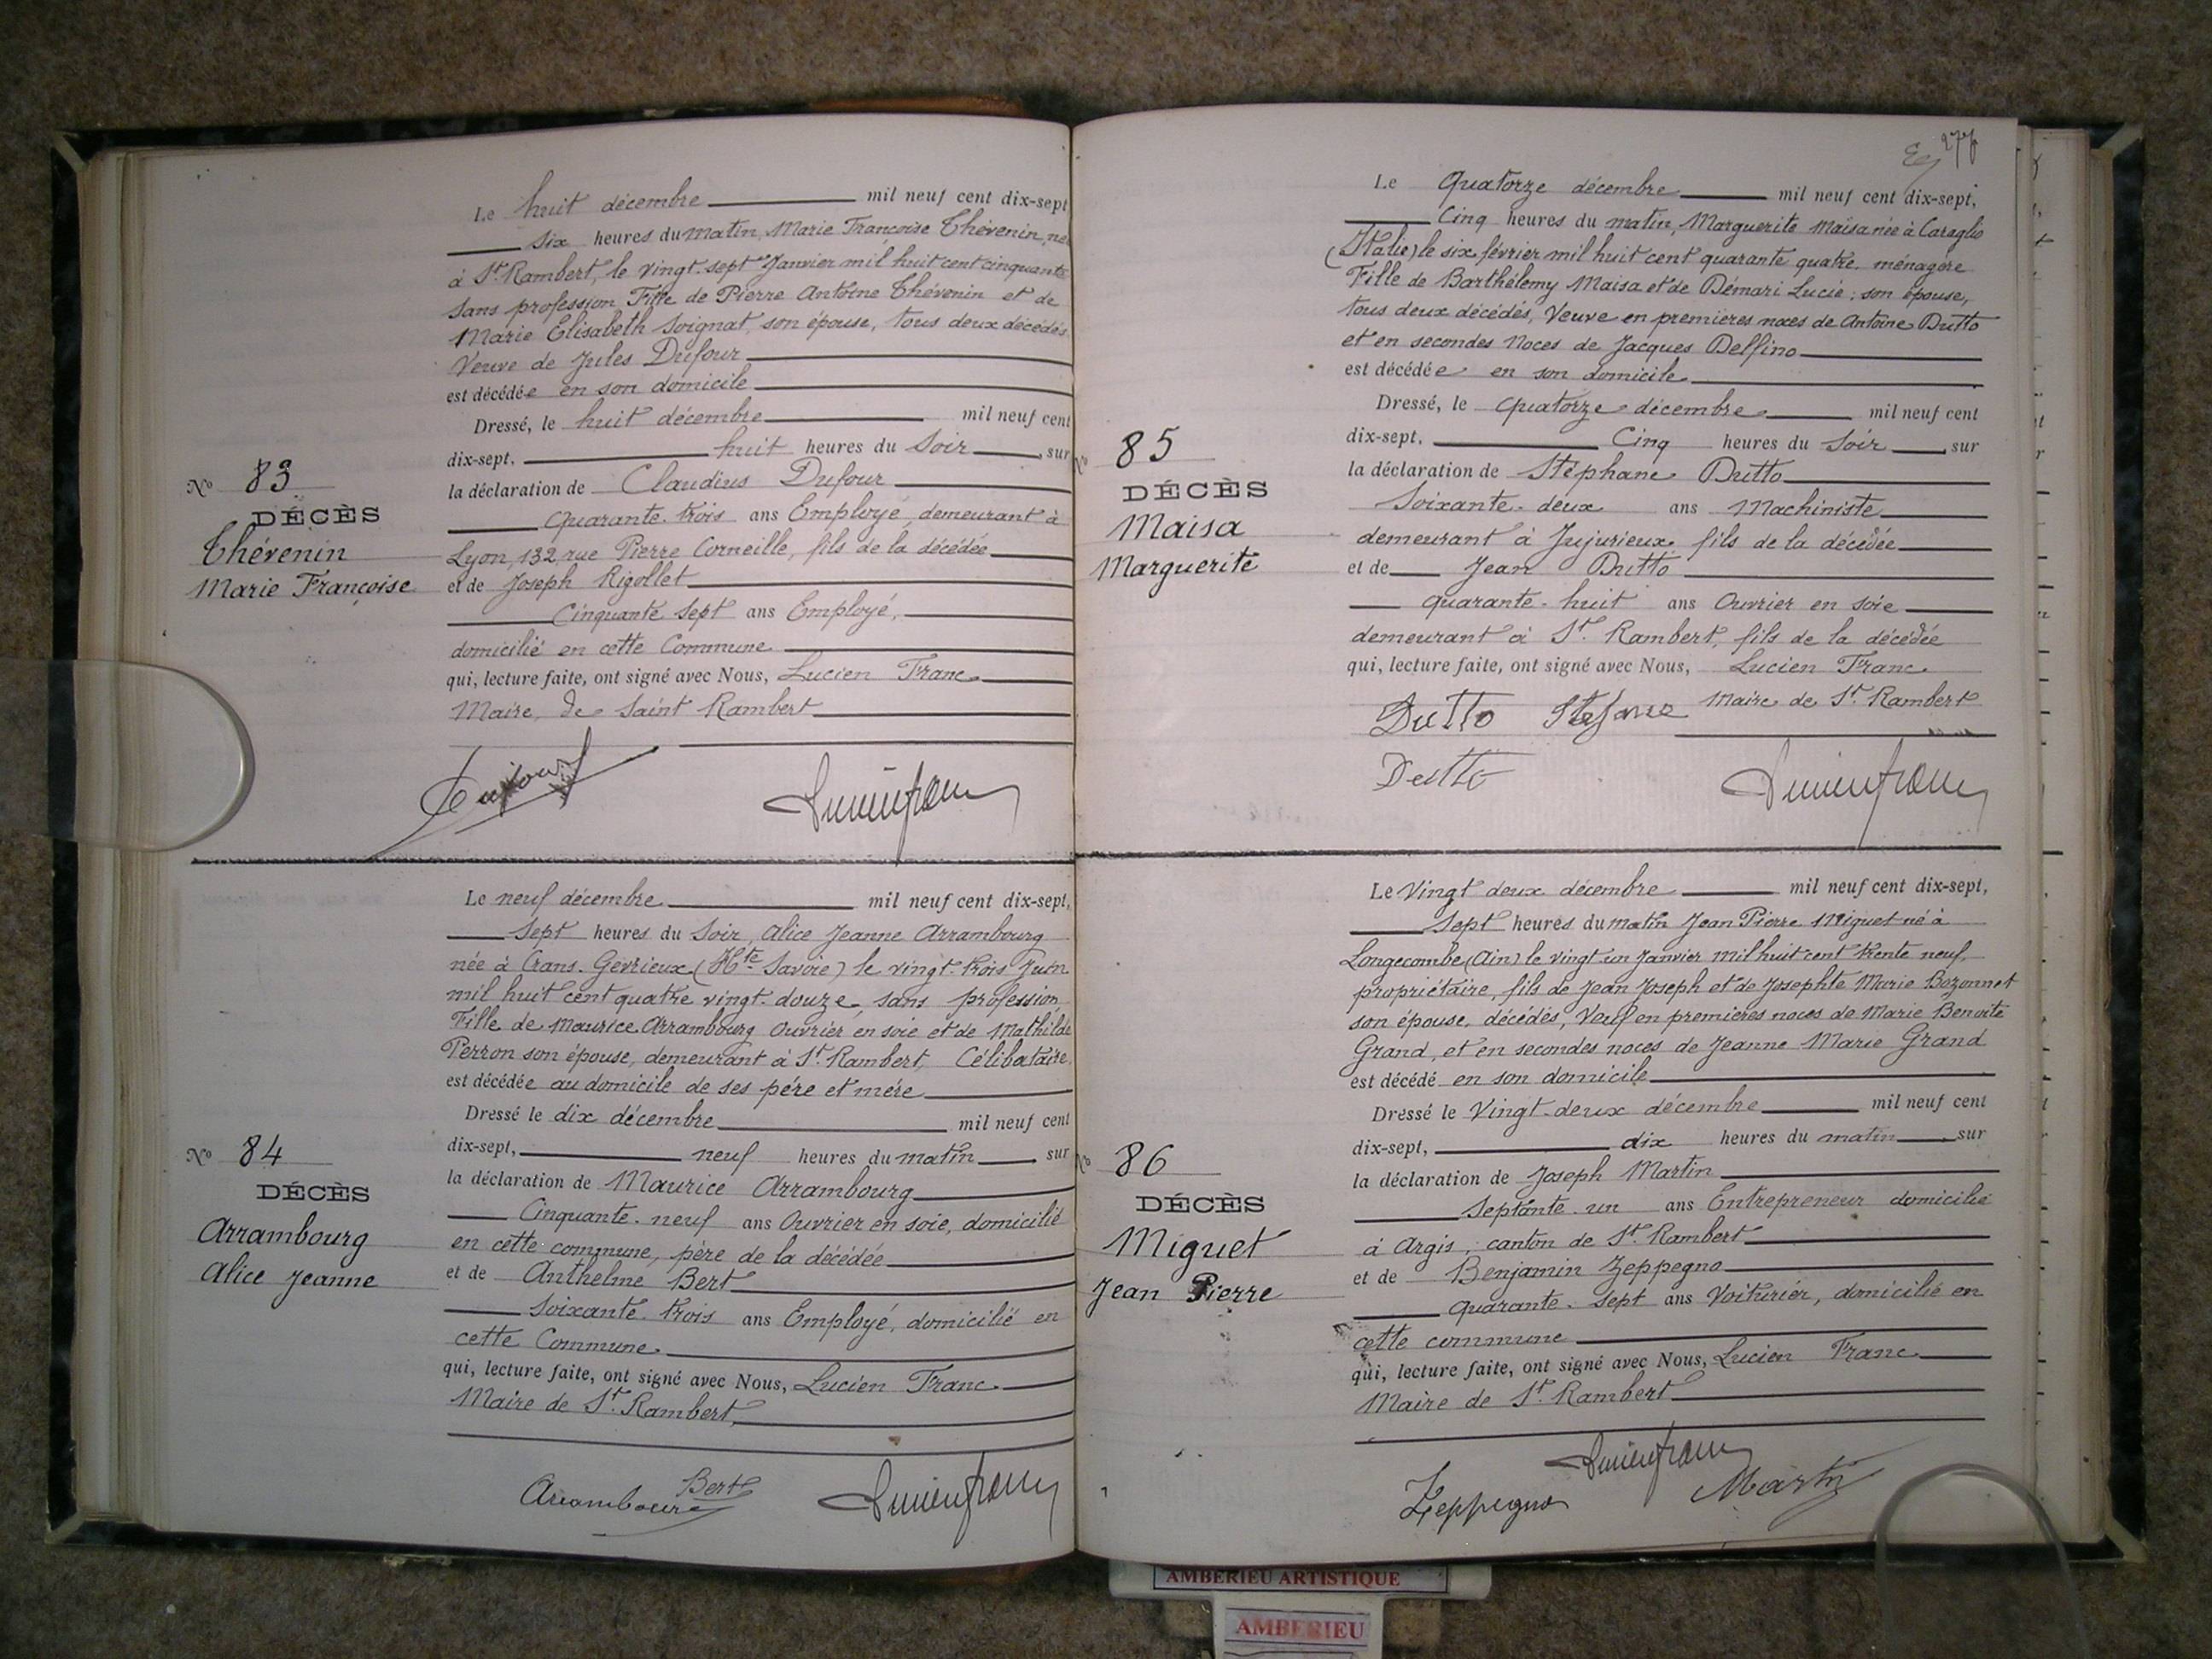 Le huit décembre mil neuf cent dix-sept
six heures du matin, Marie Françoise Thévenin, née
à St. Rambert, le vingt-sept Janvier mil huit cent cinquante
sans profession Fille de Pierre Antoine Thévenin et de
Marie Elisabeth Soignat, son épouse, tous deux décédés
Veuve de Jules Dufour
est décédée en son domicile
Dressé, le huit décembre mil neuf cent
dix-sept, huit heures du Soir, sur
la déclaration de Claudius Dufour
quarante-trois ans Employé, demeurant à
Lyon, 132, rue Pierre Corneille, fils de la décédée
et de Joseph Rigollet
Cinquante sept ans Employé,
domicilié en cette Commune
qui, lecture faite, ont signé avec Nous, Lucien Franc
Maire, de Saint Rambert
No 83
DÉCÈS
Thévenin
Marie Françoise
Dufour
Lucien franc
Le neuf décembre mil neuf cent dix-sept,
Sept heures du Soir, Alice Jeanne Arrambourg
née à Crans-Gevrieux (Hte Savoie) le vingt-trois Juin
mil huit cent quatre vingt-douze, sans profession
Fille de Maurice Arrambourg Ouvrier en soie et de Mathilde
Perron son épouse, demeurant à St. Rambert, Célibataire,
est décédée au domicile de ses pére et mére
Dressé le dix décembre mil neuf cent
dix-sept, neuf heures du matin, sur
la déclaration de Maurice Arrambourg
Cinquante-neuf ans Ouvrier en soie, domicilié
en cette commune, père de la décédée
et de Anthelme Bert
Soixante-trois ans Employé, domicilié en
cette Commune
qui, lecture faite, ont signé avec Nous, Lucien Franc
Maire de St. Rambert,
No 84
DÉCÈS
Arrambourg
Alice Jeanne
Bert
Arrambourg
Lucien franc
276
Le Quatorze décembre mil neuf cent dix-sept,
Cinq heures du matin, Marguerite Maisa née à Caraglio
(Italie) le six février mil huit cent quarante quatre, ménagère
Fille de Barthélemy Maisa et de Démari Lucie, son épouse,
tous deux décédés, Veuve en premières noces de Antoine Dutto
et en secondes Noces de Jacques Delfino
est décédée en son domicile
Dressé, le quatorze décembre mil neuf cent
dix-sept, Cinq heures du Soir, sur
la déclaration de Stéphane Dutto
Soixante-deux ans Machiniste
demeurant à Jujurieux fils de la décédée
et de Jean Dutto
quarante-huit ans Ouvrier en soie
demeurant à St. Rambert, fils de la décédée
qui, lecture faite, ont signé avec Nous, Lucien Franc
Maire de St. Rambert
No 85
DÉCÈS
Maisa
Marguerite
Dutto Stefano
Dutto
Lucien franc
Le Vingt deux décembre mil neuf cent dix-sept,
Sept heures du matin Jean Pierre Miguet né à
Longecombe (Ain) le vingt-un Janvier mil huit cent trente neuf,
propriétaire, fils de Jean Joseph et de Josephte Marie Bozonnet
son épouse, décédés, Veuf en premières noces de Marie Benoite
Grand, et en secondes noces de Jeanne Marie Grand
est décédé en son domicile
Dressé le Vingt-deux décembre mil neuf cent
dix-sept, dix heures du matin, sur
la déclaration de Joseph Martin
Septante-un ans Entrepreneur domicilié
à Argis, canton de St. Rambert
et de Benjamin Zeppegno
quarante-sept ans Voiturier, domicilié en
cette commune
qui, lecture faite, ont signé avec Nous, Lucien Franc
Maire de St. Rambert
No 86
DÉCÈS
Miguet
Jean Pierre
Lucien franc
Zeppegno
Martin
AMBERIEU ARTISTIQUE
AMBERIEU